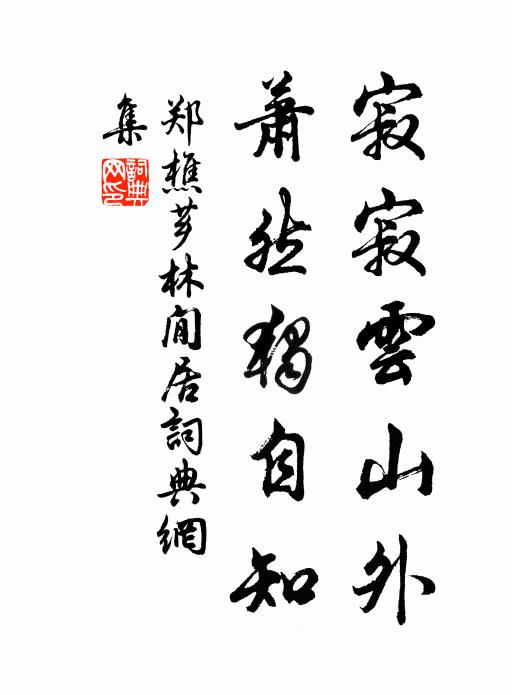 寂寂雲山外
蕭然獨自知
郑樵芗林闲居詞典網
集
詞典
网印